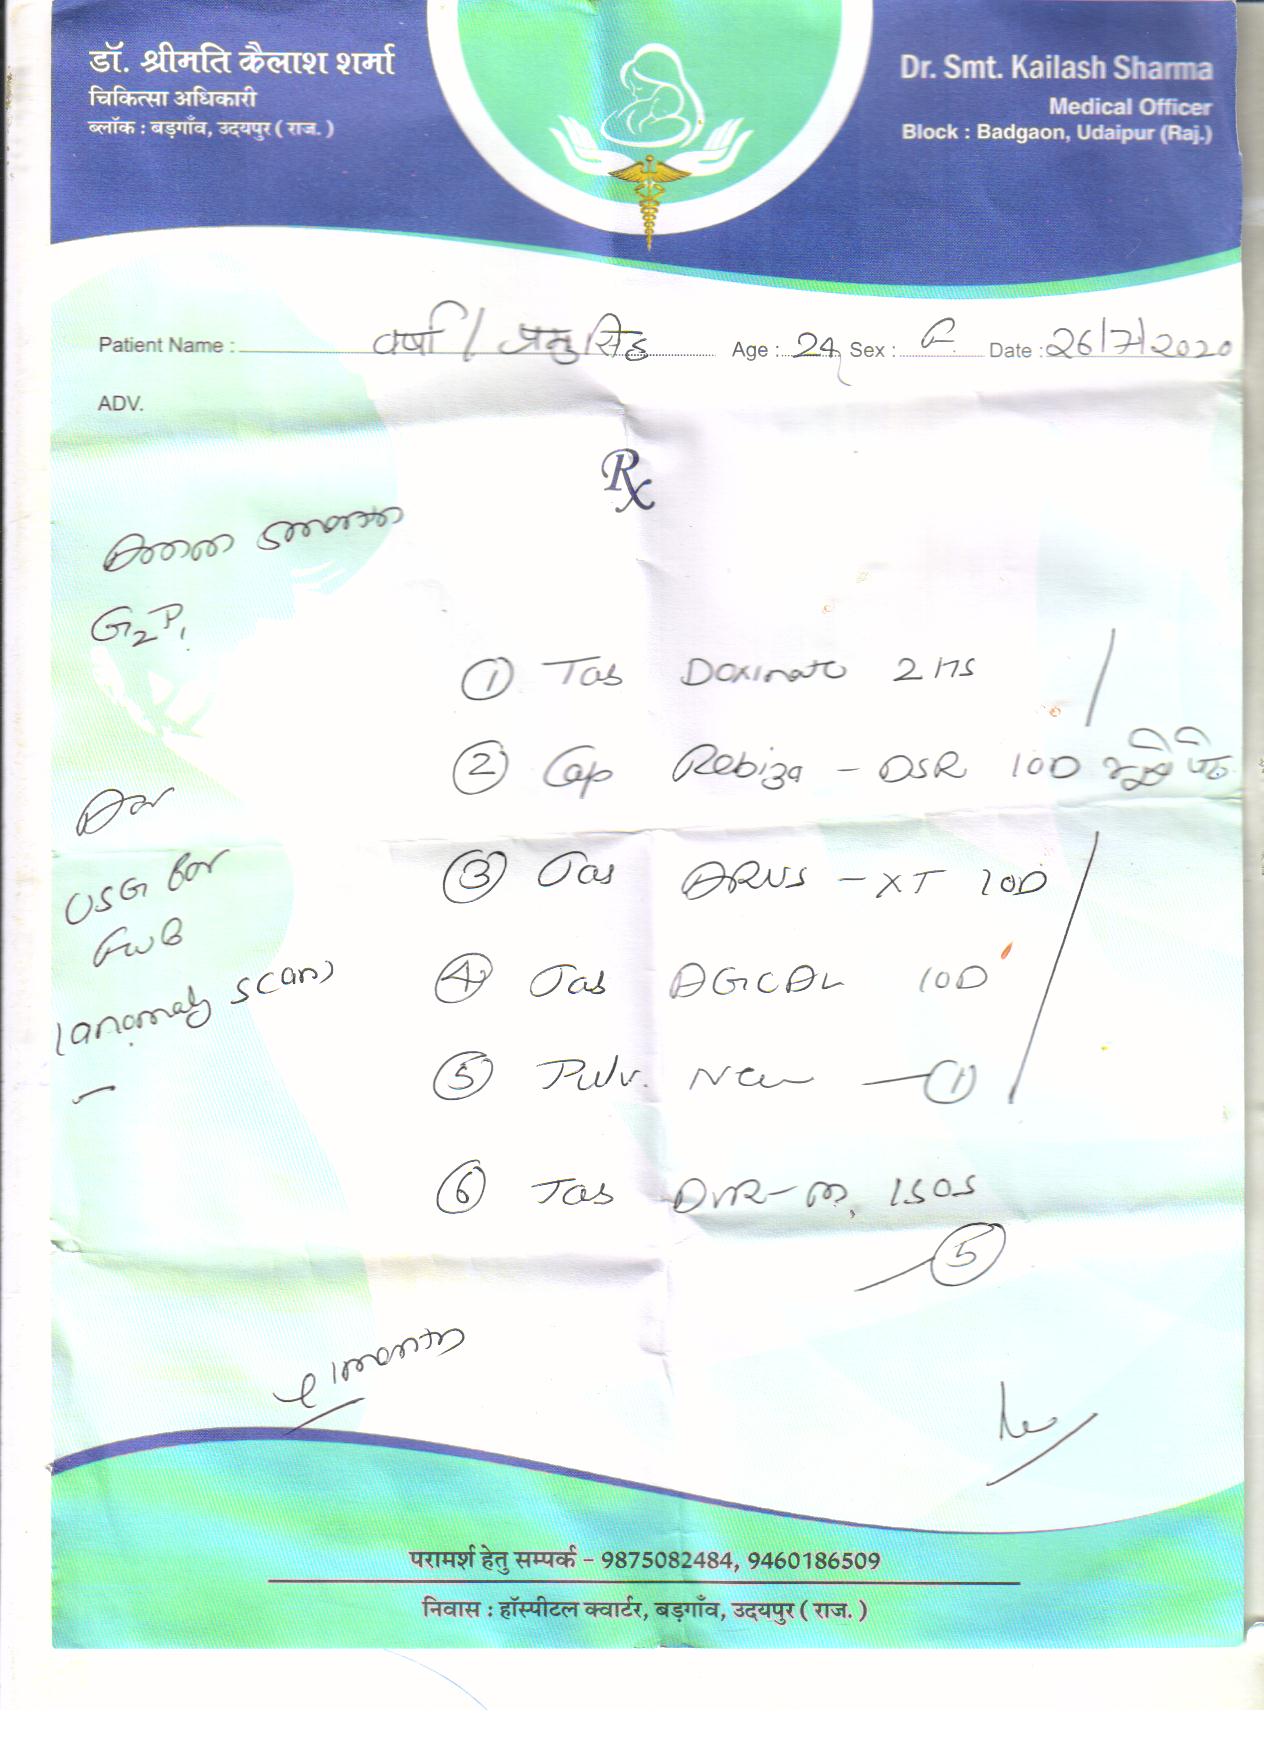 डॉ. श्रीमति कैलाश शर्मा
चिकित्सा अधिकारी
ब्लॉक : बड़गाँव, उदयपुर ( राज. )
Dr. Smt. Kailash Sharma
Medical Officer
Block : Badgaon, Udaipur (Raj.)
Patient Name : वर्षा / प्रभु सिंह Age : 24 Sex : F. Date : 26/7/2020
ADV.
Rx
G2P1
① Tab Doxinate 2 HS
② Cap Rebiza - DSR 10D
Adv
USG for
FWB
(anomaly scan)
③ Tab - XT 10D
④ Tab AGCAL 10D
⑤ Pulv. — ①
⑥ Tab 1SOS
— ⑤
1 month
परामर्श हेतु सम्पर्क – 9875082484, 9460186509
निवास : हॉस्पीटल क्वार्टर, बड़गाँव, उदयपुर ( राज. )